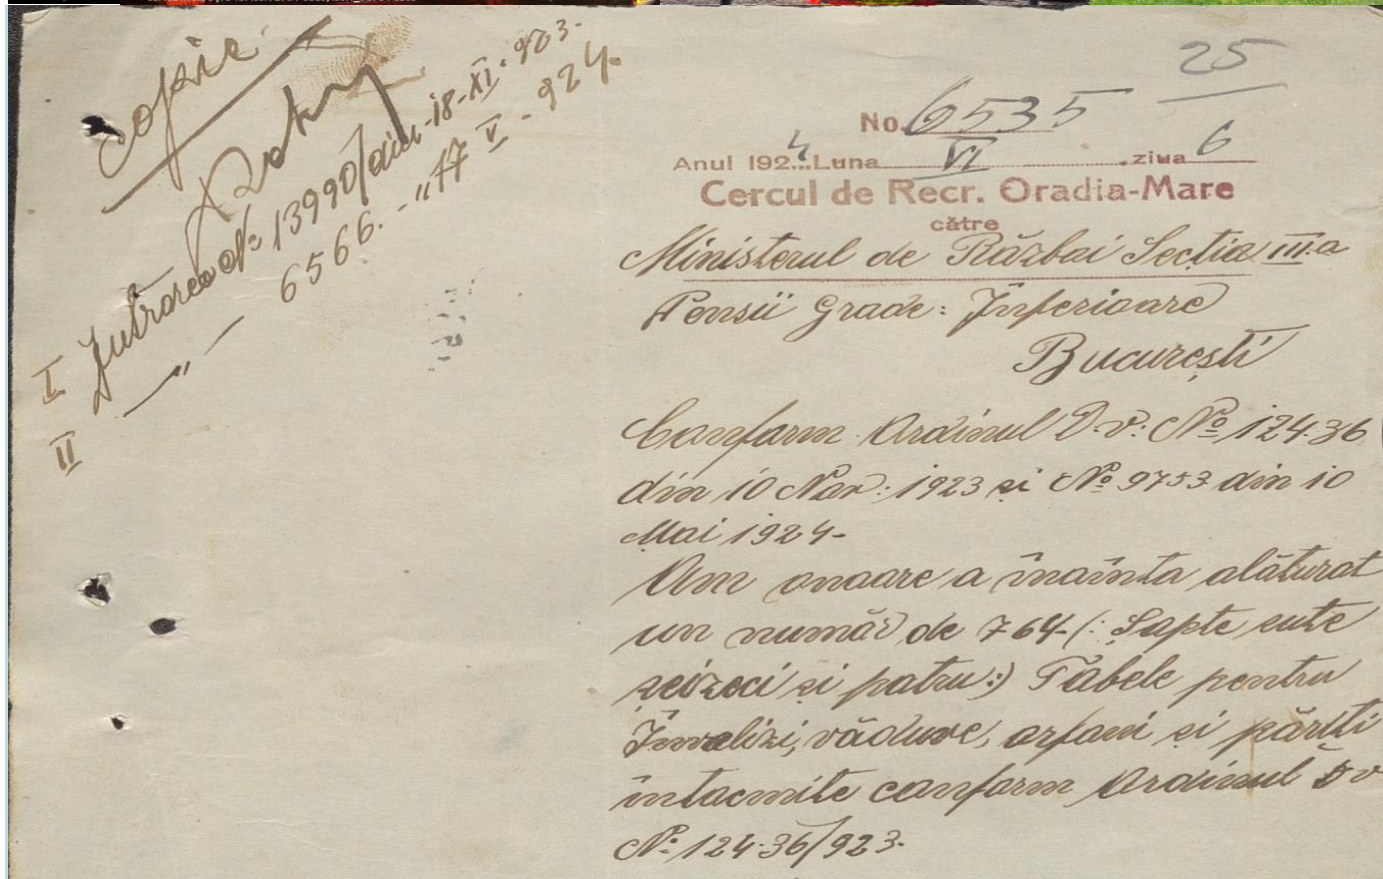 Copie
I Intrarea No: 13990/ 18-XI-923-
II —"— 6566. - "17 V - 924.
25
No. 6535
Anul 1924 Luna VI ziua 6
Cercul de Recr. Oradia-Mare
către
Ministerul de Război Secția III.a
Pensii Grade: Înferioare
București
Conform Ordinul D.v: No 124.36
din 10 Nov: 1923 și No 9753 din 10
Mai 1924-
Am onoare a înaînta alăturat
un număr de 764-(: Șapte sute
șeizeci și patru:) Tabele pentru
Învalizi, văduve, orfani și părîți
întocmite conform Ordinul D v
No: 124.36/923.